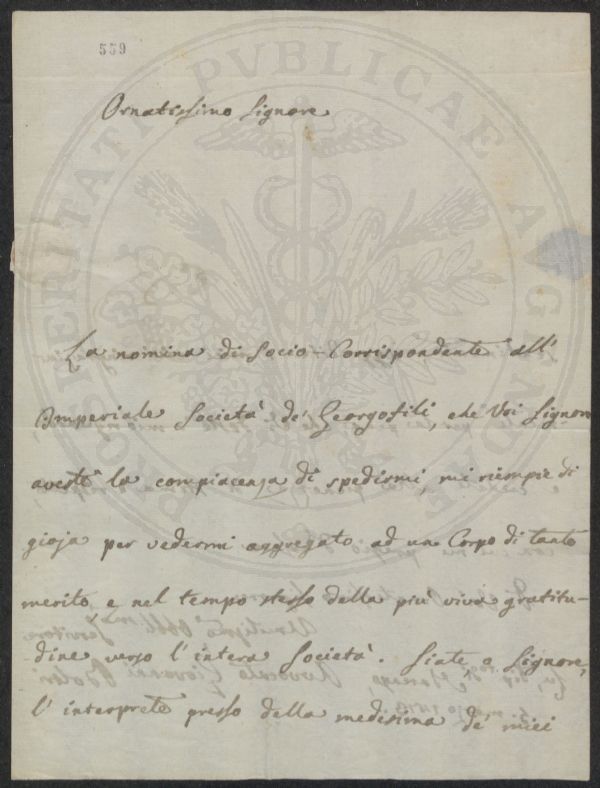 559
Ornatissimo Signore
La nomina di Socio-Corrispondente all'
Imperiale Società de' Georgofili, che Voi Signore
aveste la compiacenza di spedirmi, mi riempie di
gioja per vedermi aggregato ad un Corpo di tanto
merito e nel tempo stesso della più viva gratitu-
dine verso l'intera Società. Siate o Signore,
l'interprete presso della medesima de' miei
PROSPERITATI PVBLICAE AVGENDAE